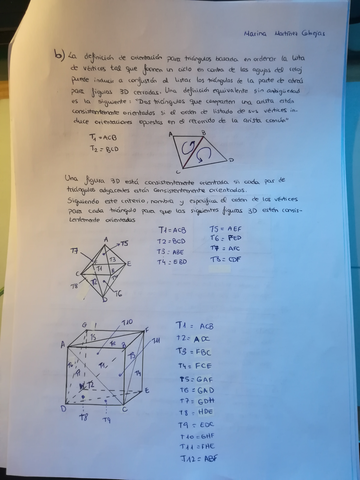 Marina Martínez
b) La definición de orientación para triángulos basada en ordenar la lista
de vértices tal que formen un ciclo en contra de las agujas del reloj
puede inducir a confusión al listar los triángulos de la parte de atrás
para figuras 3D cerradas. Una definición equivalente sin ambigüedad
es la siguiente: "Dos triángulos que comparten una arista están
consistentemente orientados si el orden de listado de sus vértices in
duce orientaciones opuestas en el recorrido de la arista común"
T1 = ACB
T2 = BCD
A B
C D
Una figura 3D está consistentemente orientada si cada par de
triángulos adyacentes están consistentemente orientados.
Siguiendo este criterio, nombra y especifica el orden de los vértices
para cada triángulo para que las siguientes figuras 3D estén consis-
tentemente orientadas
T1 = ACB T5 = AEF
T2 = BCD T6 = FED
T3 = ABE T7 = AFC
T4 = EBD T8 = CDF
A T5
T7
C E
T8 T6
D
G T10 F
A B T11
T12
E
D C
T8 T9
T1 = ACB
T2 = ADC
T3 = FBC
T4 = FCE
T5 = GAF
T6 = GAD
T7 = GDH
T8 = HDE
T9 = EDC
T10 = GHF
T11 = FHE
T12 = ABF